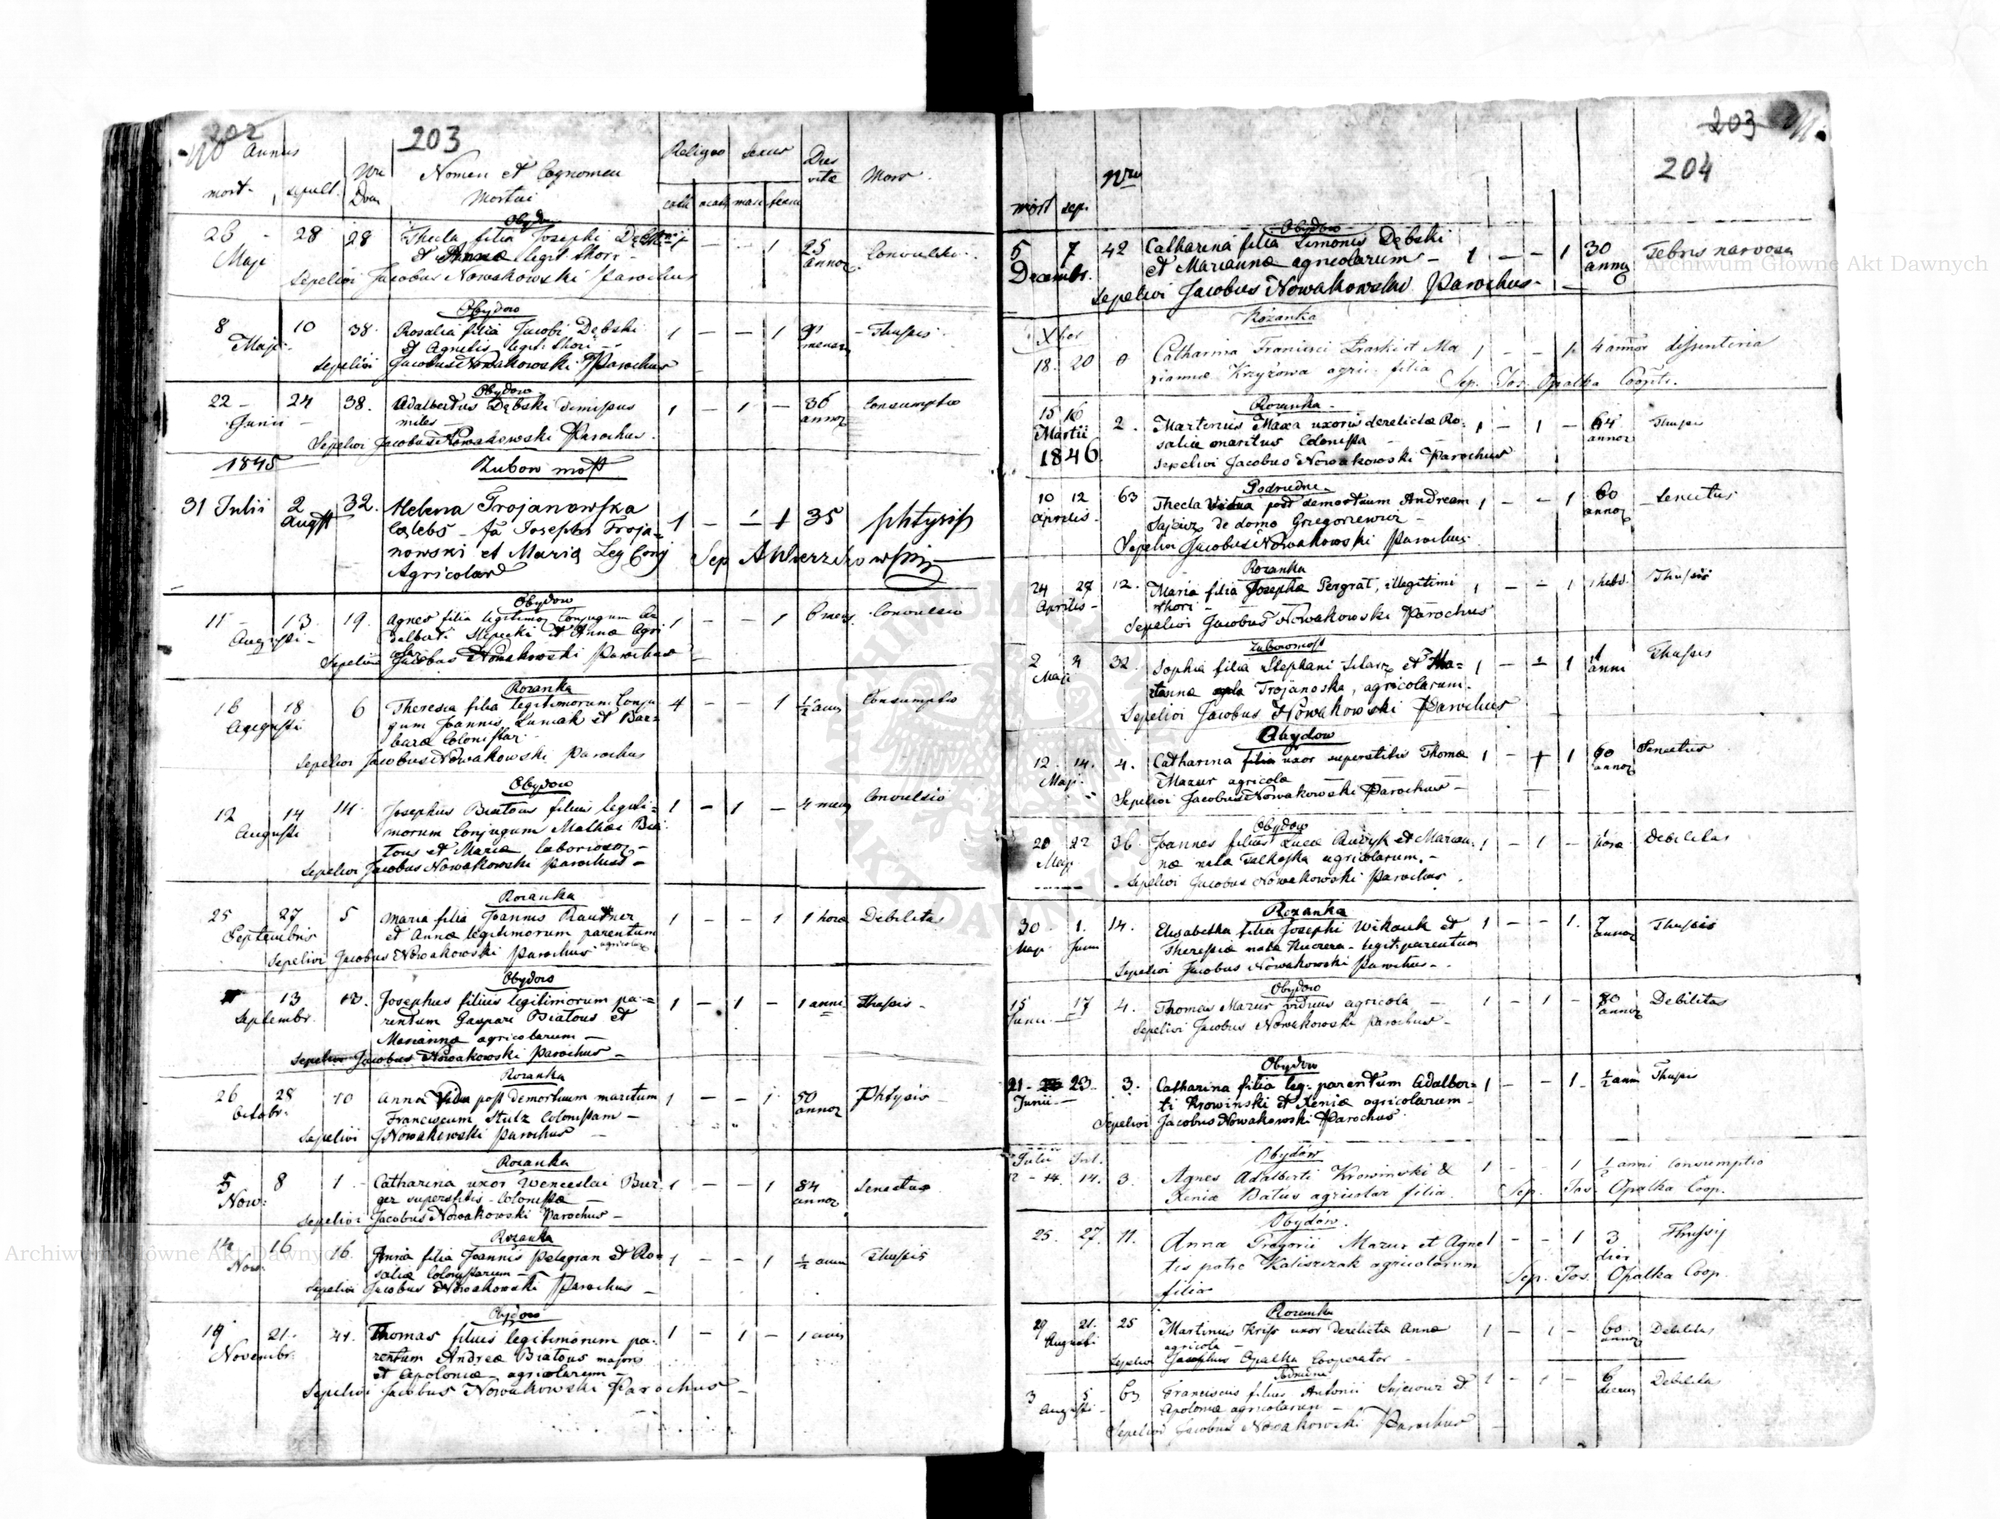 202
203
No Annus
mort. sepult. Nro Dom Nomen et Cognomen Mortui
Religio sexus Dies vitæ Mors
cath acath masc fem
Obydow
26 28 28 Thecla filia Josephi Dębski 1 — — 1 25 Convulsio
Maji et Annæ legit thori annor
Sepelivi Jacobus Nowakowski Parochus
Obydow
8 10 38. Rosalia filia Jacobi Dębski 1 — — 1 Thussis
Maji et Agnetis legit. thori
Sepelivi Jacobus Nowakowski Parochus
Obydow
22 — 24 38. Adalbertus Dębski dimissus 1 — 1 — 36 Consumptio
Junii miles — annor
Sepelivi Jacobus Nowakowski Parochus
1845 Zubow most
31 Julii 2 32. Helena Trojanowska
August Cælebs 1 — — 1 35 phtysis
nowski et Maria Leg Conj Sep
Agricolar
Obydow
11 — 13 19. Agnes filia legitimor Conjugum Ad 1 — — 1 6 mens. Convulsio
Augusti — dalberti Slepecki et Annæ Agri
colar
Sepelivi Jacobus Nowakowski Parochus
Rozanka
16 18 6 Theresia filia legitimorum Conju 1 — — 1 ½ anni Consumptio
Augusti gum Joannis Luniak et Bar-
baræ Colonistar
Sepelivi Jacobus Nowakowski Parochus
Obydow
12 14 14. Josephus Białous filius legiti= 1 — 1 — 4 mens Convulsio
Augusti morum Conjugum Mathæi Bia
lous et Mariæ laborioson —
Sepelivi Jacobus Nowakowski Parochus —
Rozanka
25 27 5 Maria filia Joannis Rautner 1 — — 1 1 hora Debilitas
Septembris et Annæ legitimorum parentum
agricolar
Sepelivi Jacobus Nowakowski Parochus
Obydow
11 13 13. Josephus filius legitimorum pa= 1 — 1 — 1 anni Thussis
Septembr. rentum Gaspari Białous et
Marianna agricolarum —
Sepelivi Jacobus Nowakowski Parochus —
Rozanka
26 28 10 Anna Vidua post demortuum maritum 1 — — 1 50 Phtysis
Octobr. Franciscum Stulz Colonistam — annor
Sepelivi JNowakowski Parochus —
Rozanka
5 8 1. Catharina uxor Wenceslai Bur 1 — — 1 84 Senectus
Nov: ger superstitis Colonistæ — annor
Sepelivi Jacobus Nowakowski Parochus —
Rozanka
14 16 16. Anna filia Joannis Pelegran et Ro 1 — — 1 ½ anni Thussis
Nov. saliæ Colonistarum —
Sepelivi Jacobus Nowakowski Parochus —
Obydow
19 21. 41. Thomas filius legitimorum pa- 1 — 1 — 1 anni
Novembr. rentum Andreæ Białous majoris
et Apoloniæ agricolarum —
Sepelivi Jacobus Nowakowski Parochus —
203
204
mort sep. Nro
Obydow
5 7 42 Catharina filia Simonis Dębski 1 — — 1 30 Febris narvosa
Decembr. et Mariannæ agricolarum — annor
Sepelivi Jacobus Nowakowski Parochus —
Rozanka
Xber
18. 20 0 Catharina Francisci et Ma 1 — — 1. 4 annor dissenteria
riannæ Krzyżowa agric. filia Sep. Jos. Opałka Cooptr.
Rozanka
15 16 2. Martinus Maxa uxoris derelictæ Ro- 1 — 1 — 64 Thussis
Martii saliæ maritus Colonista annor
1846. Sepelivi Jacobus Nowakowski Parochus
Podrudne
10 12 63 Thecla Vidua post demortuum Andream 1 — — 1 60 Senectus
Aprilis Sajewicz de domo Gregorzewicz — annor
Sepelivi Jacobus Nowakowski Parochus
Rozanka
24 27 12. Maria filia Josepha Pergrat, illegitimi 1 — — 1 1 hebd. Thussis
Aprilis — thori —
Sepelivi Jacobus Nowakowski Parochus
Zubowmost
2 4 32 Sophia filia Stephani et Ma= 1 — — 1 Thussis
Maji rianna Trojanoska, agricolarum. anni
Sepelivi Jacobus Nowakowski Parochus
Obydow
12. 14. 4. Catharina uxor superstitis Thomæ 1 — 1 60 Senectus
Maji. Mazur agricola annor
Sepelivi Jacobus Nowakowski Parochus —
Obydow
20 22 36. Joannes filius Lucæ et Marian 1 — 1 — hora Debilitas
Maji næ nata agricolarum. —
Sepelivi Jacobus Nowakowski Parochus.
Rozanka
30 1. 14. Elisabetha filia Josephi Wikauk et 1 — — 1. 7 Thussis
Maji Junii Theresiæ nata Kucrera — legit. parentum annor
Sepelivi Jacobus Nowakowski Parochus —
Obydow
15 17 4. Thomas Mazur viduus agricola — 1 — 1 — 80 Debilitas
Junii Sepelivi Jacobus Nowakowski Parochus — annor
Obydow
21 — 23 3. Catharina filia leg. parentum Adalber- 1 — — 1 ½ anni Thussis
Junii — ti Krowinski et Xeniæ agricolarum —
Sepelivi Jacobus Nowakowski Parochus
Julii Jul. Obydów
12 — 14. 3. Agnes Adalberti Krowinski & 1 — — 1 ½ anni consumptio
Xeniæ Batus agricolar filia. Sep. Jos Opałka Coop.
Obydów.
25. 27. 11. Anna Gregorii Mazur et Agne 1 — — 1 3 Thussis
tis patre Kaliszczak agricolarum dier
filia Sep. Jos. Opałka Coop.
Rozanka
19 21. 25 Martinus Kriss uxor derelictæ Annæ 1 — 1 — 60 Debilitas
Augusti agricola — annor
Sepelivi Josephus Opałka Cooperator —
Podrudne
3 5 63 Franciscus filius Antonii Sajewicz et 1 — 1 — 6 Debilitas
Augusti — Apoloniæ agricolarum —
Sepelivi Jacobus Nowakowski Parochus
Archiwum Główne Akt Dawnych
Archiwum Główne Akt Dawnych
ARCHIWUM GŁÓWNE AKT DAWNYCH